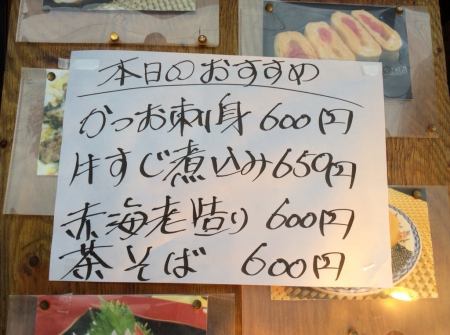 本日のおすすめ
かつお刺身 600円
牛すじ煮込み 650円
赤海老造り 600円
茶そば 600円